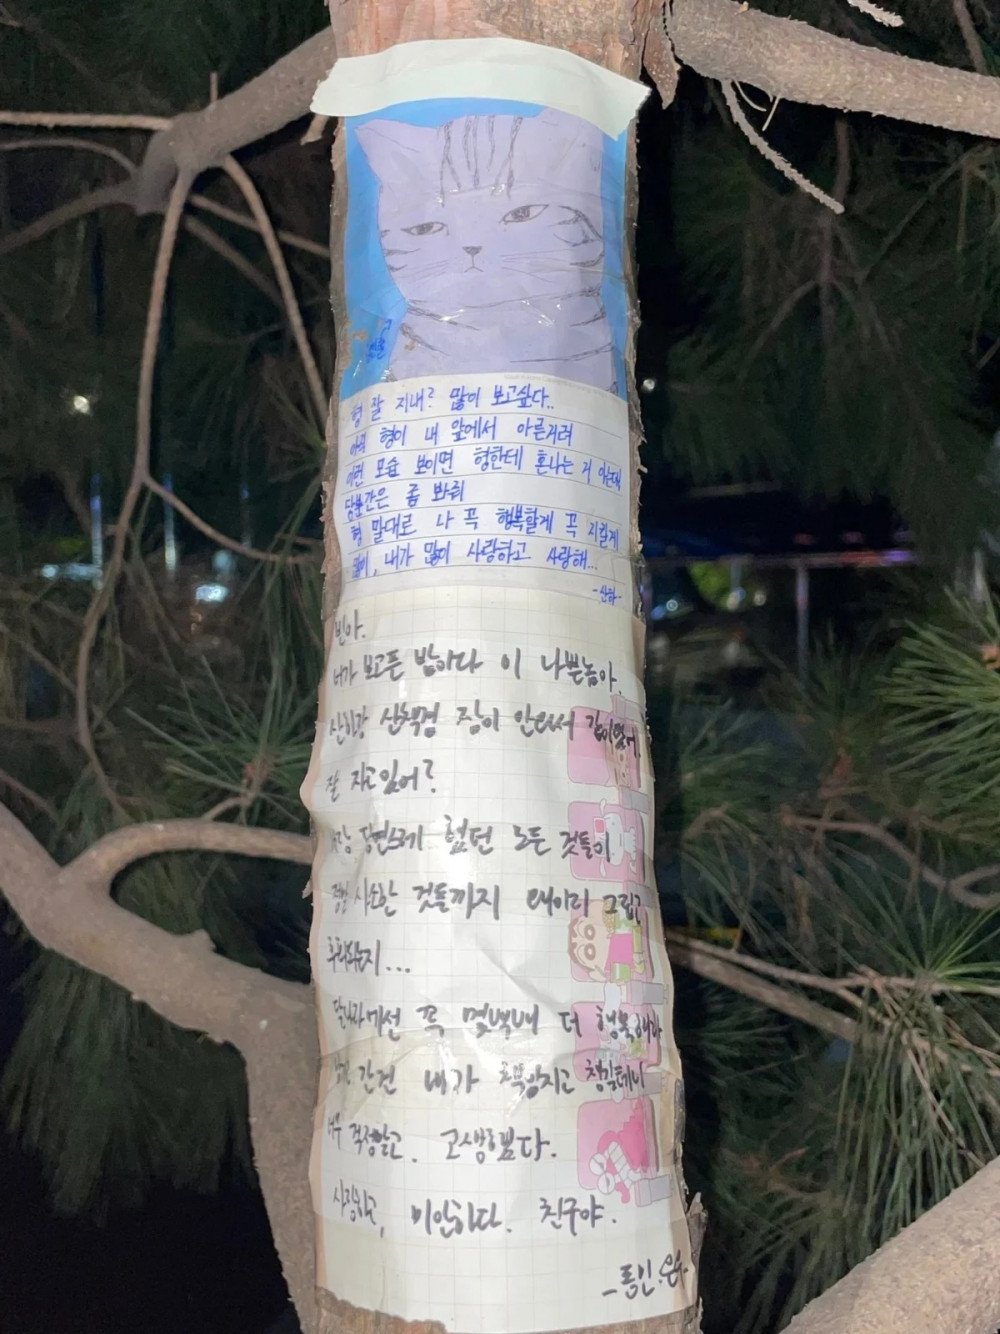 형 잘 지내? 많이 보고싶다..
아직 형이 내 앞에서 아른거려
이런 모습 보이면 형한테 혼나는 거 아는데
당분간은 좀 봐줘
형 말대로 나 꼭 행복할게 꼭 지킬게
형, 내가 많이 사랑하고 사랑해...
-산하-
빈아.
너가 보고픈 밤이다 이 나쁜놈아
산하랑 산책겸 잠이 안와서
잘 자고있어?
당연스레 했던 모든 것들이
정말 사소한 것들까지 왜이리 그립고
후회되는지...
달나라에선 꼭 몇백배 더 행복해라
간건 내가 책임지고 챙길테니
너무 걱정말고. 고생했다.
사랑하고, 미안하다. 친구야.